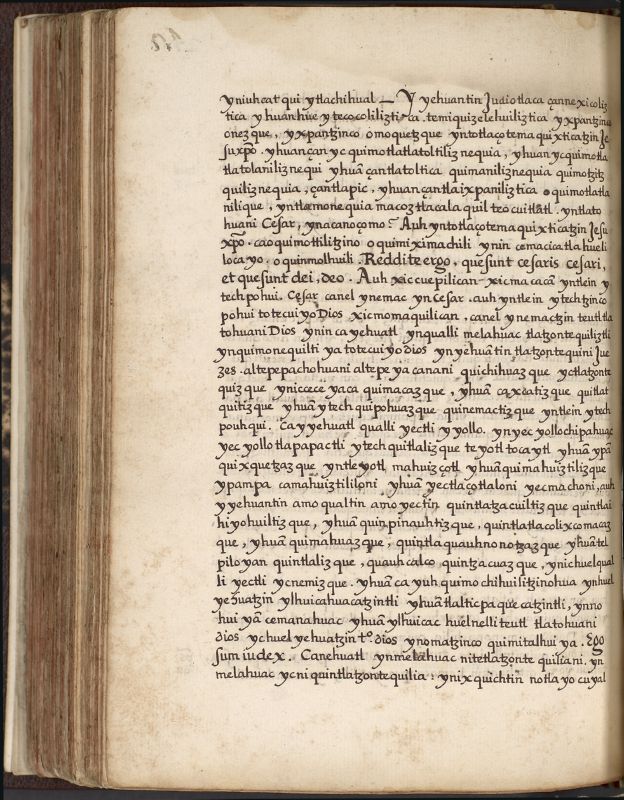 yniuhcat qui ytlachihual — Y yehuantin Judiotlaca çannexicoliz
tica yhuan hue ytecocoliliztica. temiquizelehuiliztica yxpantzinco
onezque, yxpantzinco omoquetzque yntotlaçotemaquixticatzin Je
su xpõ. yhuan çan yc quimotlatlatoltiliznequia, yhuan yc quimotla
tlatolaniliznequi yhuã çantlatoltica quimaniliznequia quimotzitz
quiliznequia, çantlapic, yhuan çantlaixpaniliztica oquimotlatla
nilique, yntlamonequia macoz tlacalaquil teocuitlatl. yntlato
huani Cesar, ynacanoçomo? Auh yntotlaçotemaquixticatzin Jesu
xpõ. caoquimottilitzino oquimiximachili ynin cemacicatlahueli
locayo. oquinmolhuili. Reddite ergo, que sunt cesaris cesari,
et que sunt dei, deo. Auh xiccuepilican xicmacacã yntlein y
techpohui. Cesar canel ynemac yn Cesar. auh yntlein ytechtzinco
pohui totecuiyo Dios xicmomaquilican, canel ynemactzin teutl tla
tohuani Dios ynin ca yehuatl ynqualli melahuac tlatzontequiliztli
ynquimonequilti ya totecuiyo dios ynyehuãtin tlatzontequini Jue
zes. altepepachohuani altepeyacanani quichihuazque yctlatzonte
quizque yniccece yaca quimacazque, yhuã caxoatizque quitlat
quitizque yhuã ytech quipohuazque quinemactizque yntlein ytech
pouhqui. Ca yyehuatl qualli yectli yyollo. ynyec yollochipahuac
yec yollotlapapactli ytech quitlalizque teyotl tocaytl yhuã ypã
quixquetzazque yntleyotl mahuizçotl yhuã quimahuiztilizque
ypampa camahuiztililoni yhuã yectlaçotlaloni yecmachoni, auh
yyehuantin amo qualtin amo yectin quintlatzacuiltizque quintlai
hiyohuiltizque, yhuã quinpinauhtizque, quintlatlacolixcomacaz
que, yhuã quimahuazque, quintlaquauhnonotzazque yhuã tel
piloyan quintlalizque, quauhcalco quintzacuazque, ynic huel qual
li yectli ycnemizque. yhuã ca yuh quimochihuilitzinohua ynhuel
yehuatzin ylhuicahuacatzintli yhuã tlalticpaquecatzintli, ynno
huiyã cemanahuac yhuã ylhuicac huelnelli teutl tlatohuani
dios yc huel yehuatzin tº. dios ynomatzinco quimitalhui ya. Ego
sum iudex. Canehuatl ynmelahuac nitetlatzontequiliani. yn
melahuac yc niquintlatzontequilia: ynixquichtin notlayocuyal